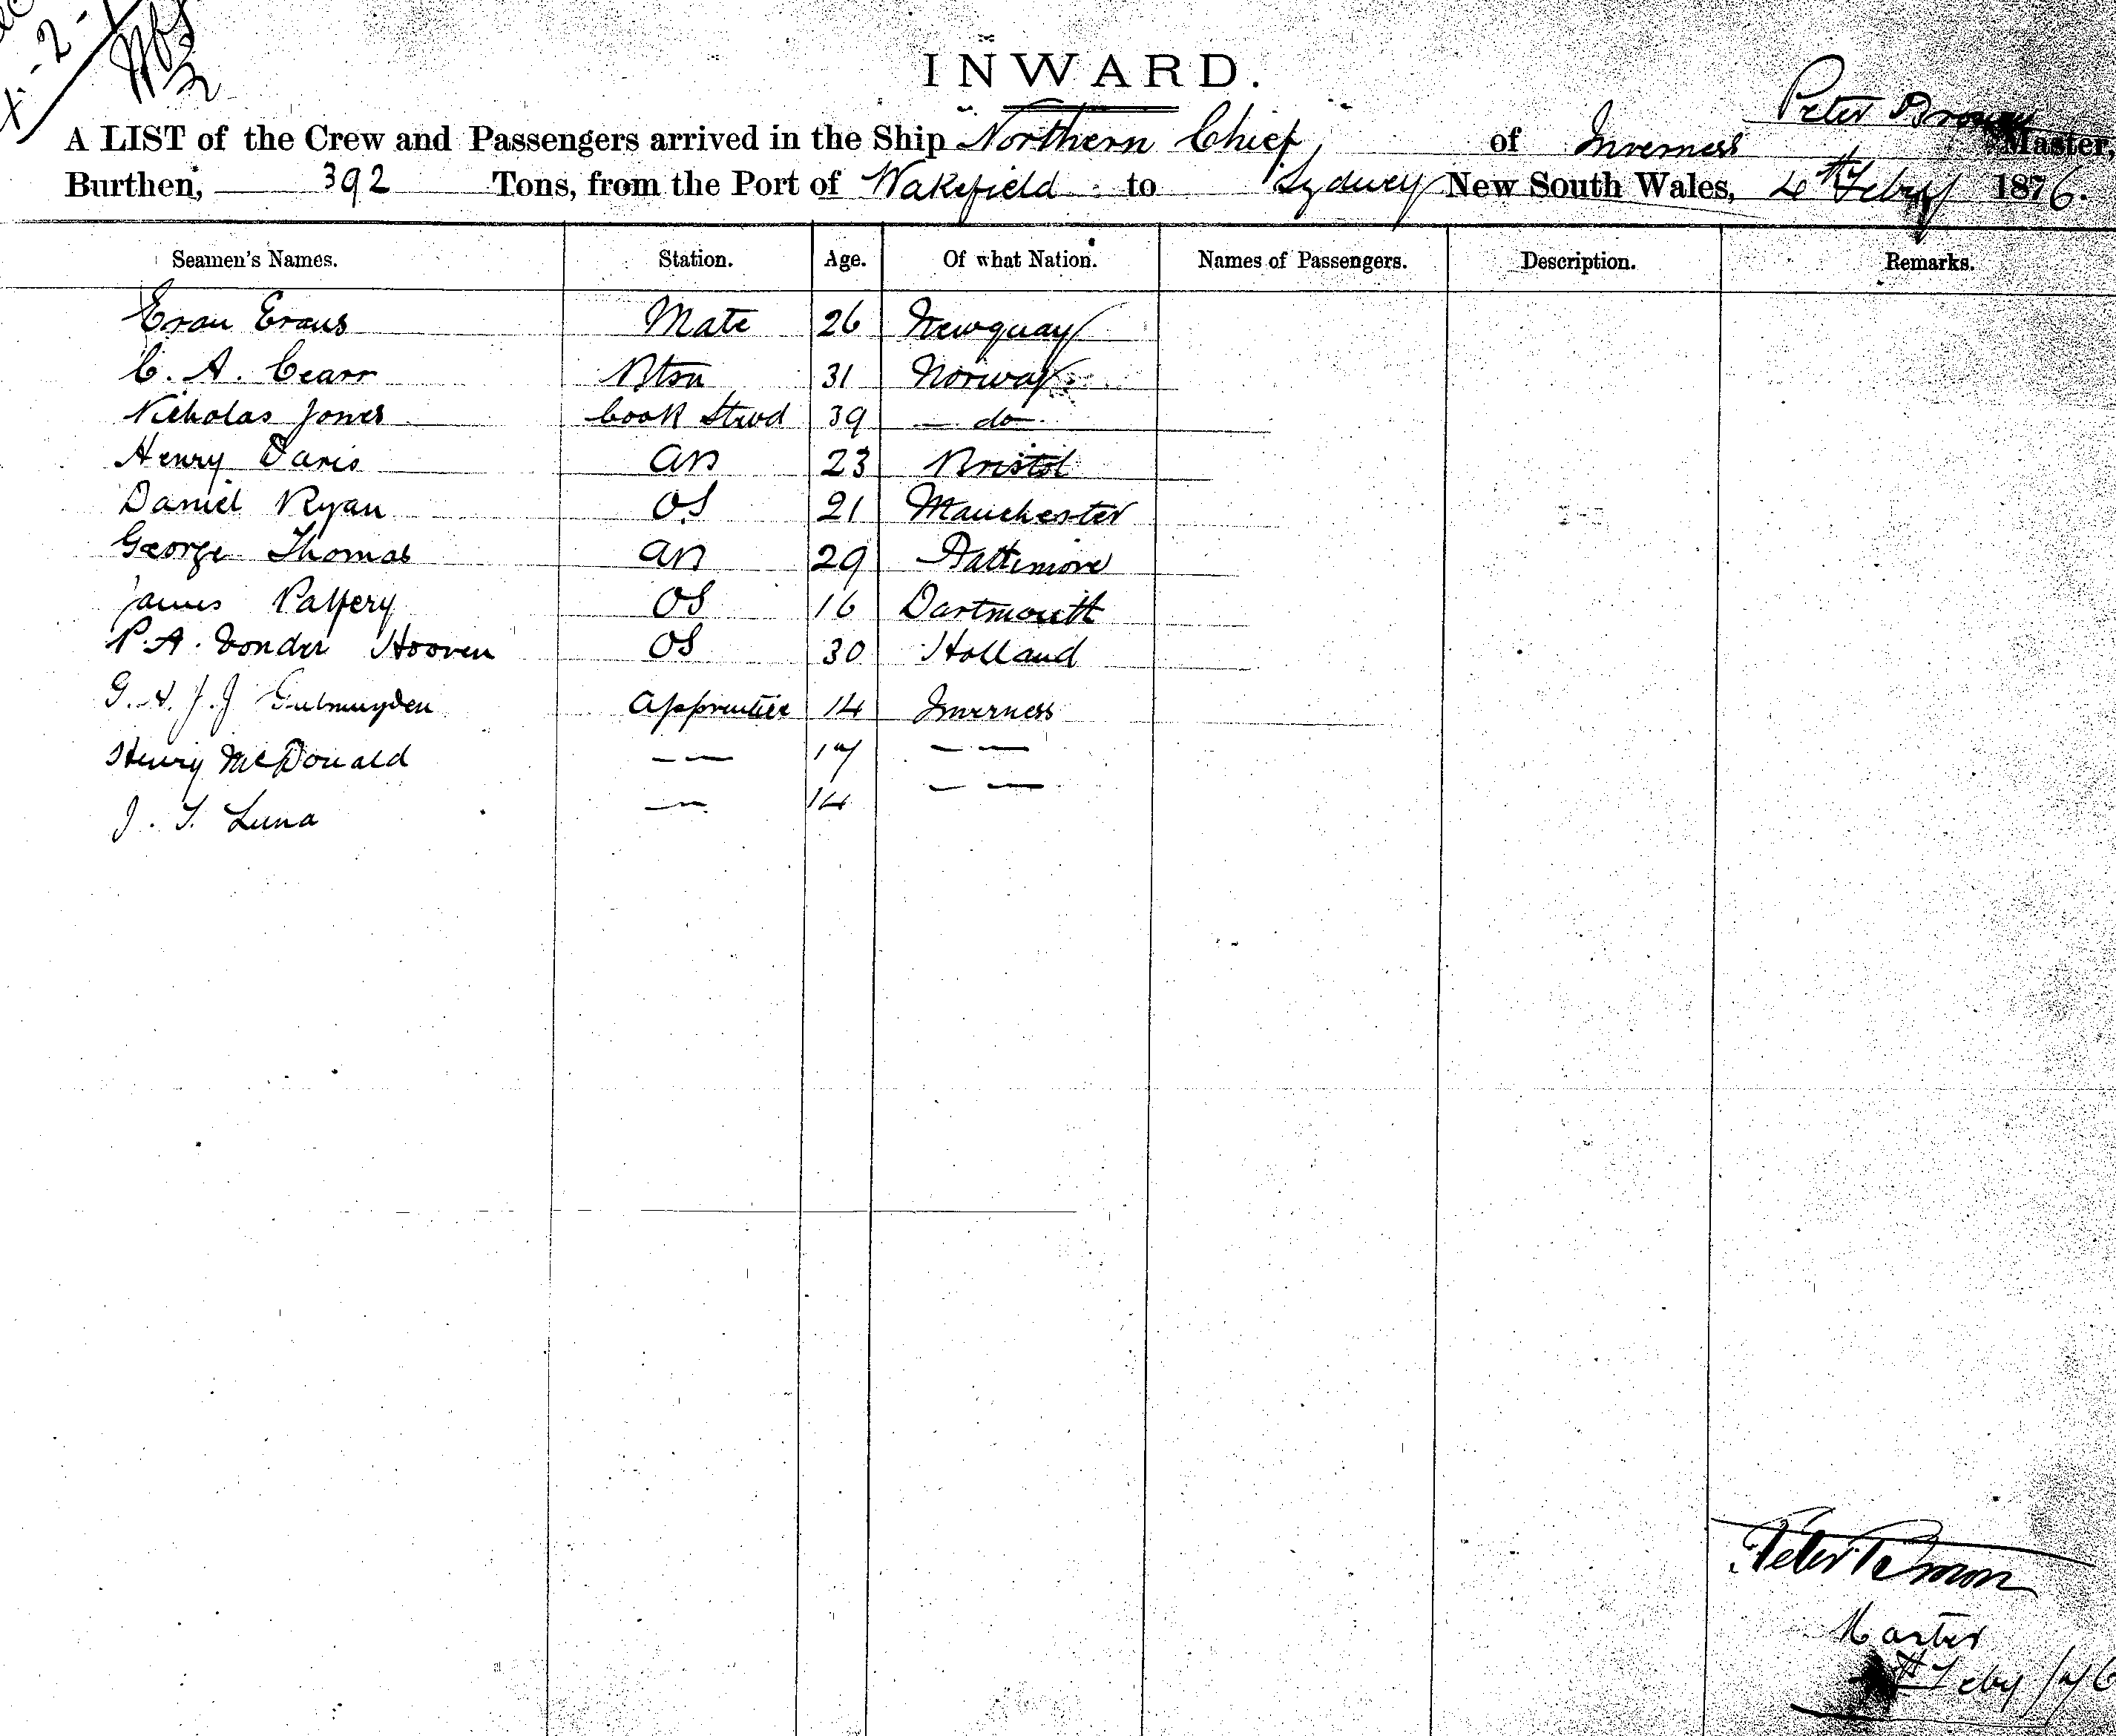 INWARD.
Peter Brown
A LIST of the Crew and Passengers arrived in the Ship Northern Chief, of Inverness Master,
Burthen, 392 Tons, from the Port of Wakefield to Sydney New South Wales, 4th Feby 1876.
Seamen's Names. Station. Age. Of what Nation. Names of Passengers. Description. Remarks.
Evan Evans Mate 26 Newquay
C. A. Cearr Btsn 31 Norway
Nicholas Jones Cook Stwd 39 — do —
Henry Davis AB 23 Bristol
Daniel Ryan OS 21 Manchester
George Thomas AB 29 Baltimore
James Palfery OS 16 Dartmouth
P. A. Vonder Hooven OS 30 Holland
G. A. J. J Gulmuyden Apprentice 14 Inverness
Henry McDonald — — 17 — —
J. T. Luna — — 14 — —
Peter Brown
Master
4th Feby /76